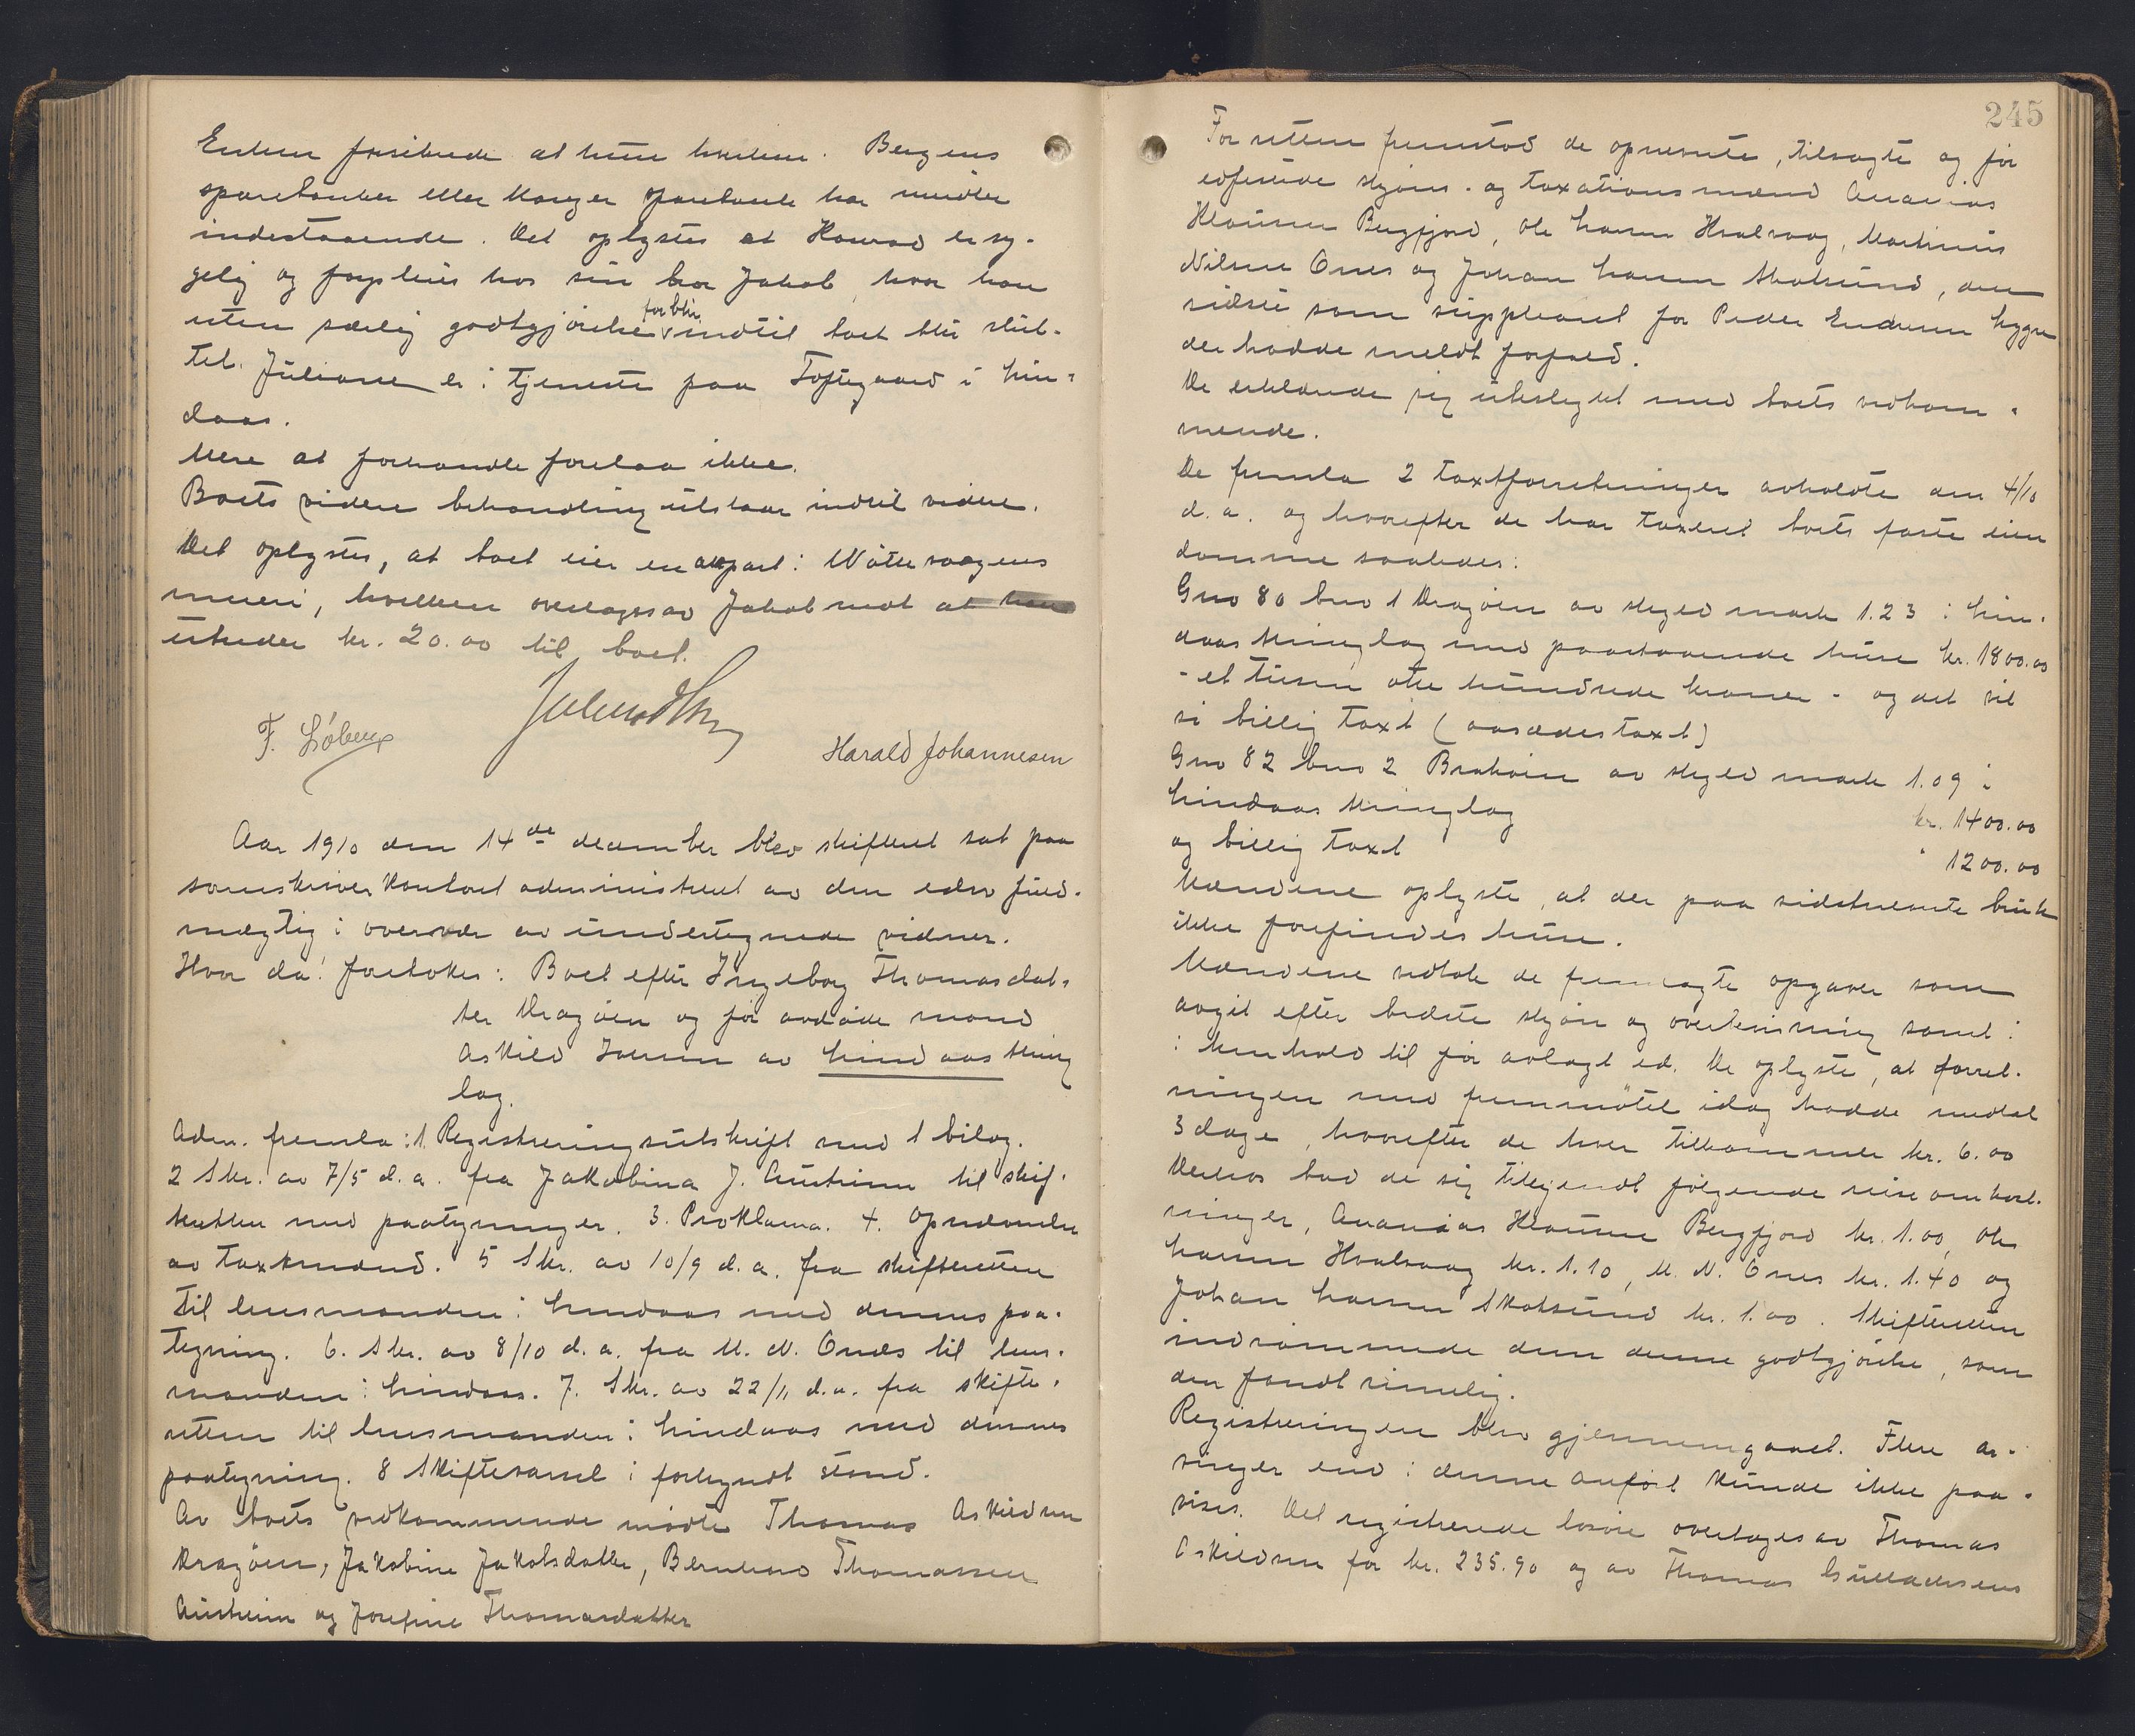 Enken forsikrede at hun hverken i Bergens
sparebanker eller Manger sparebank har midler
indestaaende. Det oplystes at Konrad er sy-
gelig og forpleies hos sin bror Jakob, hvor han
uten særlig godtgjörelse forblir indtil boet blir slut-
tet. Juliane er i tjeneste paa Toftegaard i Lin-
daas.
Mere at forhandle forelaa ikke.
Boets videre behandling utstaar indtil videre.
Det oplystes, at boet eier en anpart i Nöttevaagens
mueri, hvilken overtages av Jakob mot at han
utreder kr. 20.00 til boet.
F. Löberg
Harald Johannesen
Aar 1910 den 14de december blev skifteret sat paa
sorenskriverkontoret administreret av den edsv fuld-
mægtig i overvær av undertegnede vidner.
Hvor da! foretokes: Boet efter Ingeborg Thomasdat-
ter Dragöien og för avdöde mand
Askild Iversen av Lindaas thing
lag.
Adm. fremla: 1. Registreringsutskrift med 1 bilag.
2 Skr. av 7/5 d.a. fra Jakobina J. Austrheim til skif-
teretten med paategninger. 3. Proklama. 4. Opnævnelse
av taxtmænd. 5 Skr. av 10/9 d.a. fra skifteretten
til lensmanden i Lindaas med dennes paa-
tegning. 6. Skr. av 8/10 d.a. fra M. N. Ones til lens-
manden i Lindaas. 7. Skr. av 22/11 d.a. fra skifte-
retten til lensmanden i Lindaas med dennes
paategning. 8 Skiftevarsel i forkyndt stand.
Av boets vedkommende mödte Thomas Askildsen
Dragöien, Jakobine Jakobsdatter, Bernhard Thomassen
Austrheim og Josefine Thomasdatter
245
For retten fremstod de opnævnte, tilsagte og för
edfæstede skjöns- og taxationsmænd Ananias
Klausen Bergfjord, Ole Larsen Hvalvaag, Martinus
Nilsen Ones og Johan Larsen Skotsund, den
sidste som suppleant for Peder Endresen Lygre
der hadde meldt forfald.
De erklærede sig ubeslegtet med boets vedkom-
mende.
De fremla 2 taxtforretninger avholdte den 4/10
d.a. og hvorefter de har taxeret boets faste eien
domme saaledes:
Gno 80 bno 1 Dragöien av skyld mark 1.23 i Lin-
daas thinglag med paastaaende huse kr. 1800.00
- et tusen otte hundrede kroner - og det vil
si billig taxt (aasædestaxt)
Gno 82 bno 2 Braköien av skyld mark 1.09 i
Lindaas thinglag kr. 1400.00
og billig taxt " 1200.00
Mændene oplyste, at der paa sidstnævnte bruk
ikke forefindes huse.
Mændene vedtok de fremlagte opgaver som
avgit efter bedste skjön og overbevisning samt i
i henhold til för avlagt ed. De oplyste, at forret-
ningen med fremmötet idag hadde medtat
3 dage, hvorefter de hver tilkommer kr. 6.00
Derhos bad de sig tilkjendt fölgende reiseomkost-
ninger, Ananias Klausen Bergfjord kr. 1.00, Ole
Larsen Hvalvaag kr. 1.10, M. N. Ones kr. 1.40 og
Johan Larsen Skotsund kr. 1.00. Skifteretten
indrömmede dem denne godtgjörelse, som
den fandt rimelig.
Registreringen blev gjennemgaaet. Flere ar-
vinger end i denne anfört kunde ikke paa-
vises. Det registrerede lösöre overtages av Thomas
Askildsen for kr. 235.90 og av Thomas Gullachsens